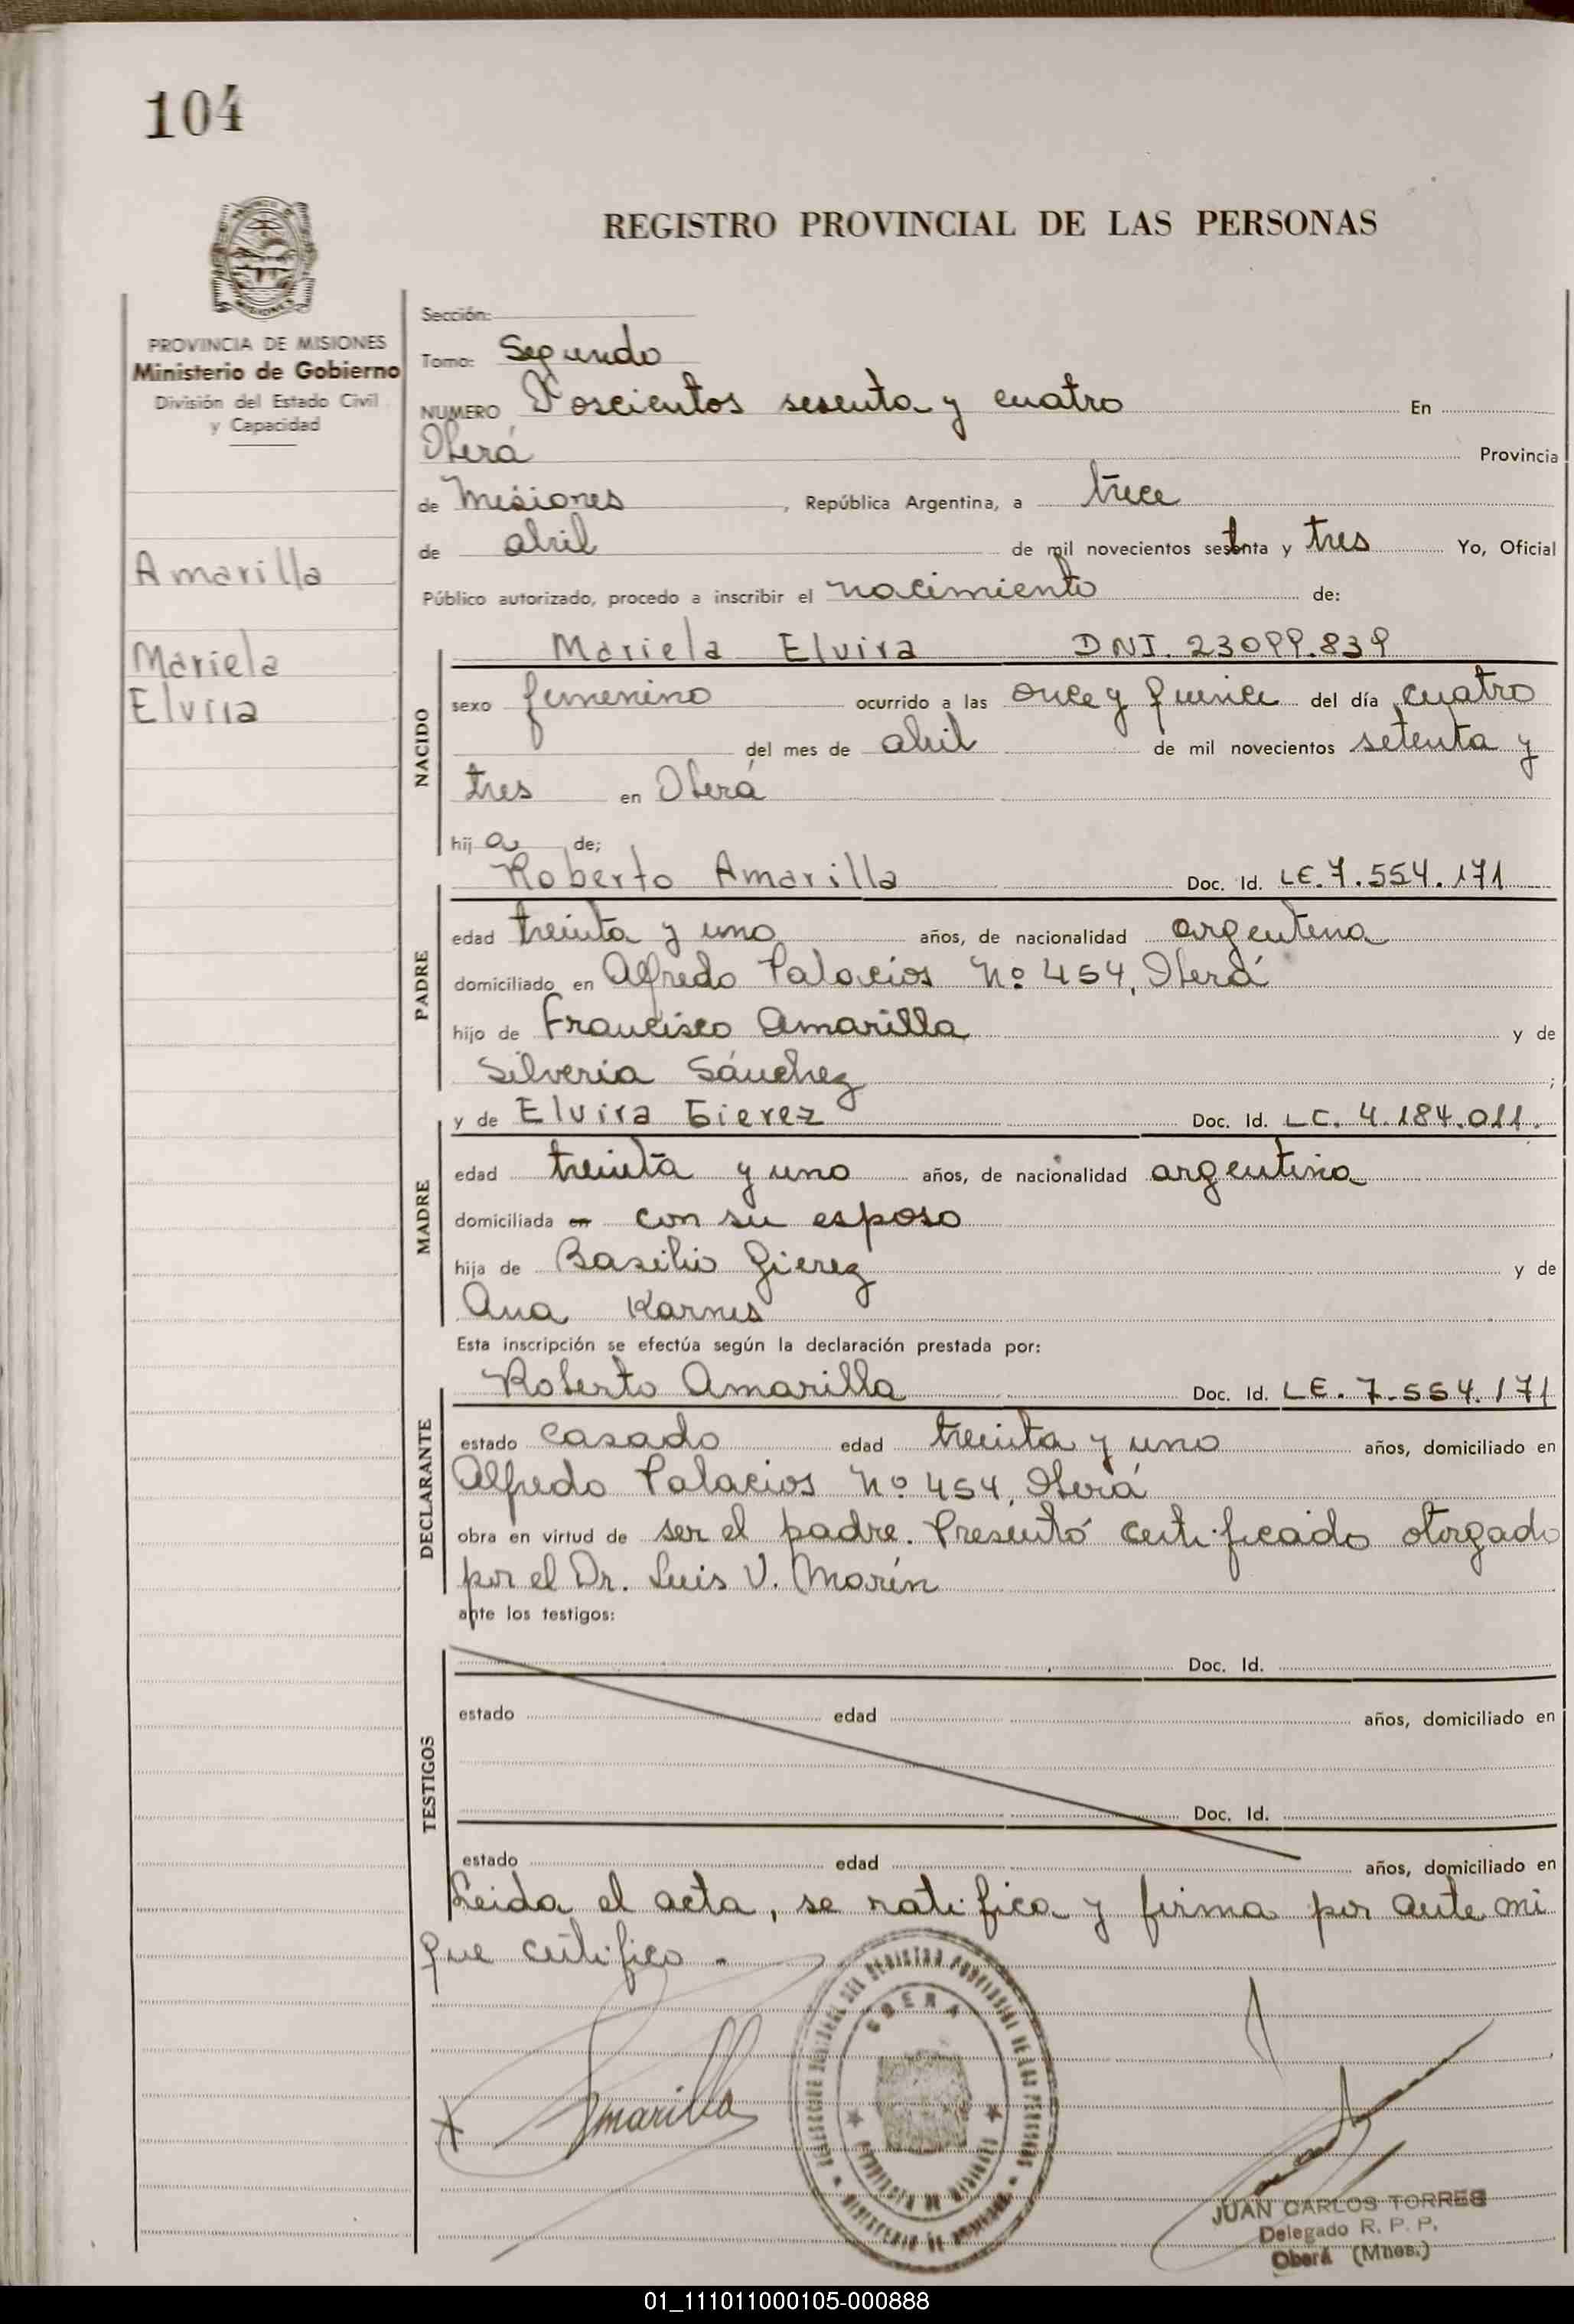 104
REGISTRO PROVINCIAL DE LAS PERSONAS
PROVINCIA DE MISIONES
Ministerio de Gobierno
División del Estado Civil
y Capacidad
Amarilla
Mariela
Elvira
Sección:
Tomo: Segundo
NUMERO Doscientos sesenta y cuatro En
Oberá Provincia
de Misiones , República Argentina, a trece
de abril de mil novecientos setenta y tres Yo, Oficial
Público autorizado, procedo a inscribir el nacimiento de:
Mariela Elvira DNI. 23099.839
NACIDO
sexo femenino ocurrido a las once y quince del día cuatro
del mes de abril de mil novecientos setenta y
tres en Oberá
hij a de;
Roberto Amarilla Doc. Id. LE. 7.554.171
PADRE
edad treinta y uno años, de nacionalidad argentina
domiciliado en Alfredo Palacios Nº 454, Oberá
hijo de Francisco Amarilla y de
Silveria Sánchez ;
y de Elvira Gierez Doc. Id. LC. 4.184.011.
MADRE
edad treinta y uno años, de nacionalidad argentina
domiciliada en con su esposo
hija de Basilio Gierez y de
Ana Karnes
Esta inscripción se efectúa según la declaración prestada por:
Roberto Amarilla Doc. Id. LE. 7.554.171
DECLARANTE
estado casado edad treinta y uno años, domiciliado en
Alfredo Palacios Nº 454, Oberá
obra en virtud de ser el padre. Presentó certificado otorgado
por el Dr. Luis V. Marín
ante los testigos:
TESTIGOS
Doc. Id.
estado edad años, domiciliado en
Doc. Id.
estado edad años, domiciliado en
Leida el acta, se ratifica y firma por ante mi
que certifico.
Amarilla
OBERA
PROVINCIA DE MISIONES
JUAN CARLOS TORRES
Delegado R. P. P.
Oberá (Mnes.)
01_111011000105-000888